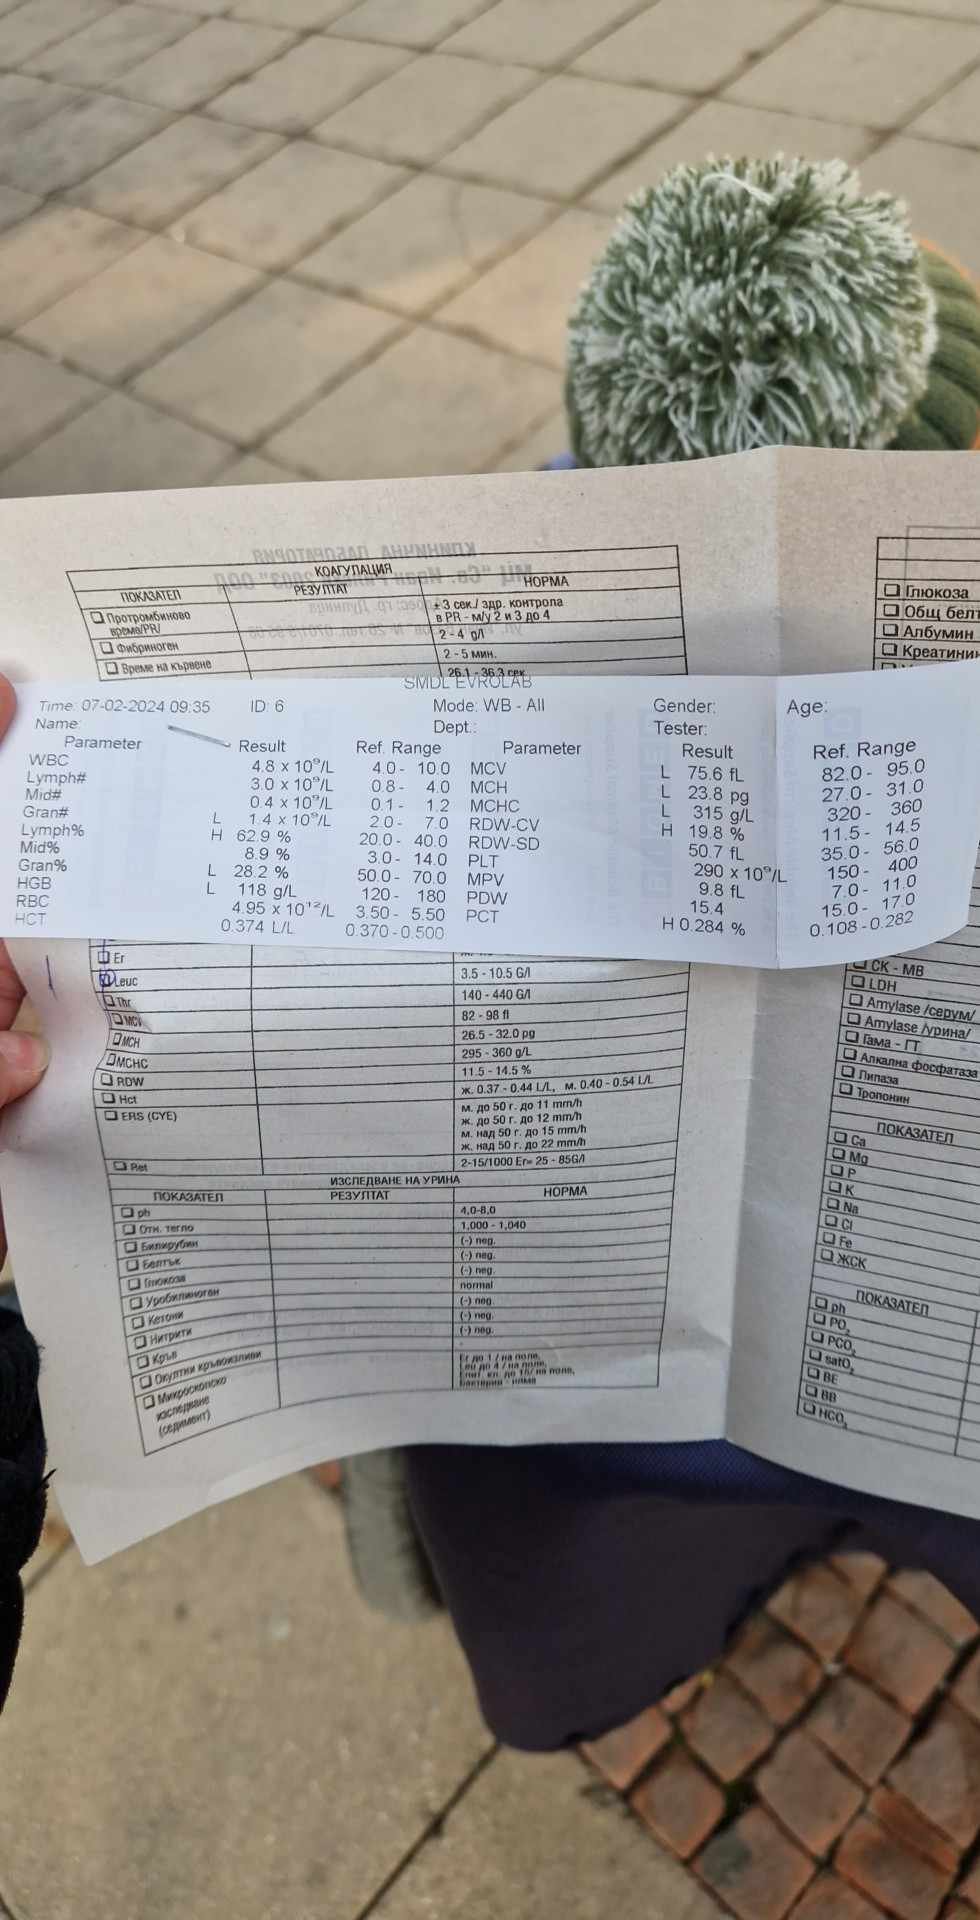 КОАГУЛАЦИЯ
ПОКАЗАТЕЛ РЕЗУЛТАТ НОРМА
Протромбиново време/PR/ ± 3 сек./ здр. контрола в PR - м/у 2 и 3 до 4
Фибриноген 2 - 4 g/l
Време на кървене 2 - 5 мин.
26.1 - 36.3 сек
Глюкоза
Общ белт
Албумин
Креатинин
SMDL EVROLAB
Time: 07-02-2024 09:35 ID: 6 Mode: WB - All Gender: Age:
Name: Dept.: Tester:
Parameter Result Ref. Range Parameter Result Ref. Range
WBC 4.8 x 10⁹/L 4.0 - 10.0 MCV L 75.6 fL 82.0 - 95.0
Lymph# 3.0 x 10⁹/L 0.8 - 4.0 MCH L 23.8 pg 27.0 - 31.0
Mid# 0.4 x 10⁹/L 0.1 - 1.2 MCHC L 315 g/L 320 - 360
Gran# L 1.4 x 10⁹/L 2.0 - 7.0 RDW-CV H 19.8 % 11.5 - 14.5
Lymph% H 62.9 % 20.0 - 40.0 RDW-SD 50.7 fL 35.0 - 56.0
Mid% 8.9 % 3.0 - 14.0 PLT 290 x 10⁹/L 150 - 400
Gran% L 28.2 % 50.0 - 70.0 MPV 9.8 fL 7.0 - 11.0
HGB L 118 g/L 120 - 180 PDW 15.4 15.0 - 17.0
RBC 4.95 x 10¹²/L 3.50 - 5.50 PCT H 0.284 % 0.108 - 0.282
HCT 0.374 L/L 0.370 - 0.500
Er
Leuc 3.5 - 10.5 G/l
Thr 140 - 440 G/l
MCV 82 - 98 fl
MCH 26.5 - 32.0 pg
MCHC 295 - 360 g/L
RDW 11.5 - 14.5 %
Hct ж. 0.37 - 0.44 L/L, м. 0.40 - 0.54 L/L
ERS (СУЕ) м. до 50 г. до 11 mm/h
ж. до 50 г. до 12 mm/h
м. над 50 г. до 15 mm/h
ж. над 50 г. до 22 mm/h
Ret 2-15/1000 Er= 25 - 85G/l
ИЗСЛЕДВАНЕ НА УРИНА
ПОКАЗАТЕЛ РЕЗУЛТАТ НОРМА
ph 4,0-8,0
Отн. тегло 1,000 - 1,040
Билирубин (-) neg.
Белтък (-) neg.
Глюкоза (-) neg.
Уробилиноген normal
Кетони (-) neg.
Нитрити (-) neg.
Кръв
Окултни кръвоизливи
Микроскопско изследване (седимент) Er до 1 / на поле,
Leu до 4 / на поле,
Епит. кл. до 15/ на поле,
Бактерии - няма
CK - MB
LDH
Amylase /серум/
Amylase /урина/
Гама - ГТ
Алкална фосфатаза
Липаза
Тропонин
ПОКАЗАТЕЛ
Ca
Mg
P
K
Na
Cl
Fe
ЖСК
ПОКАЗАТЕЛ
ph
PO₂
PCO₂
satO₂
BE
BB
HCO₃